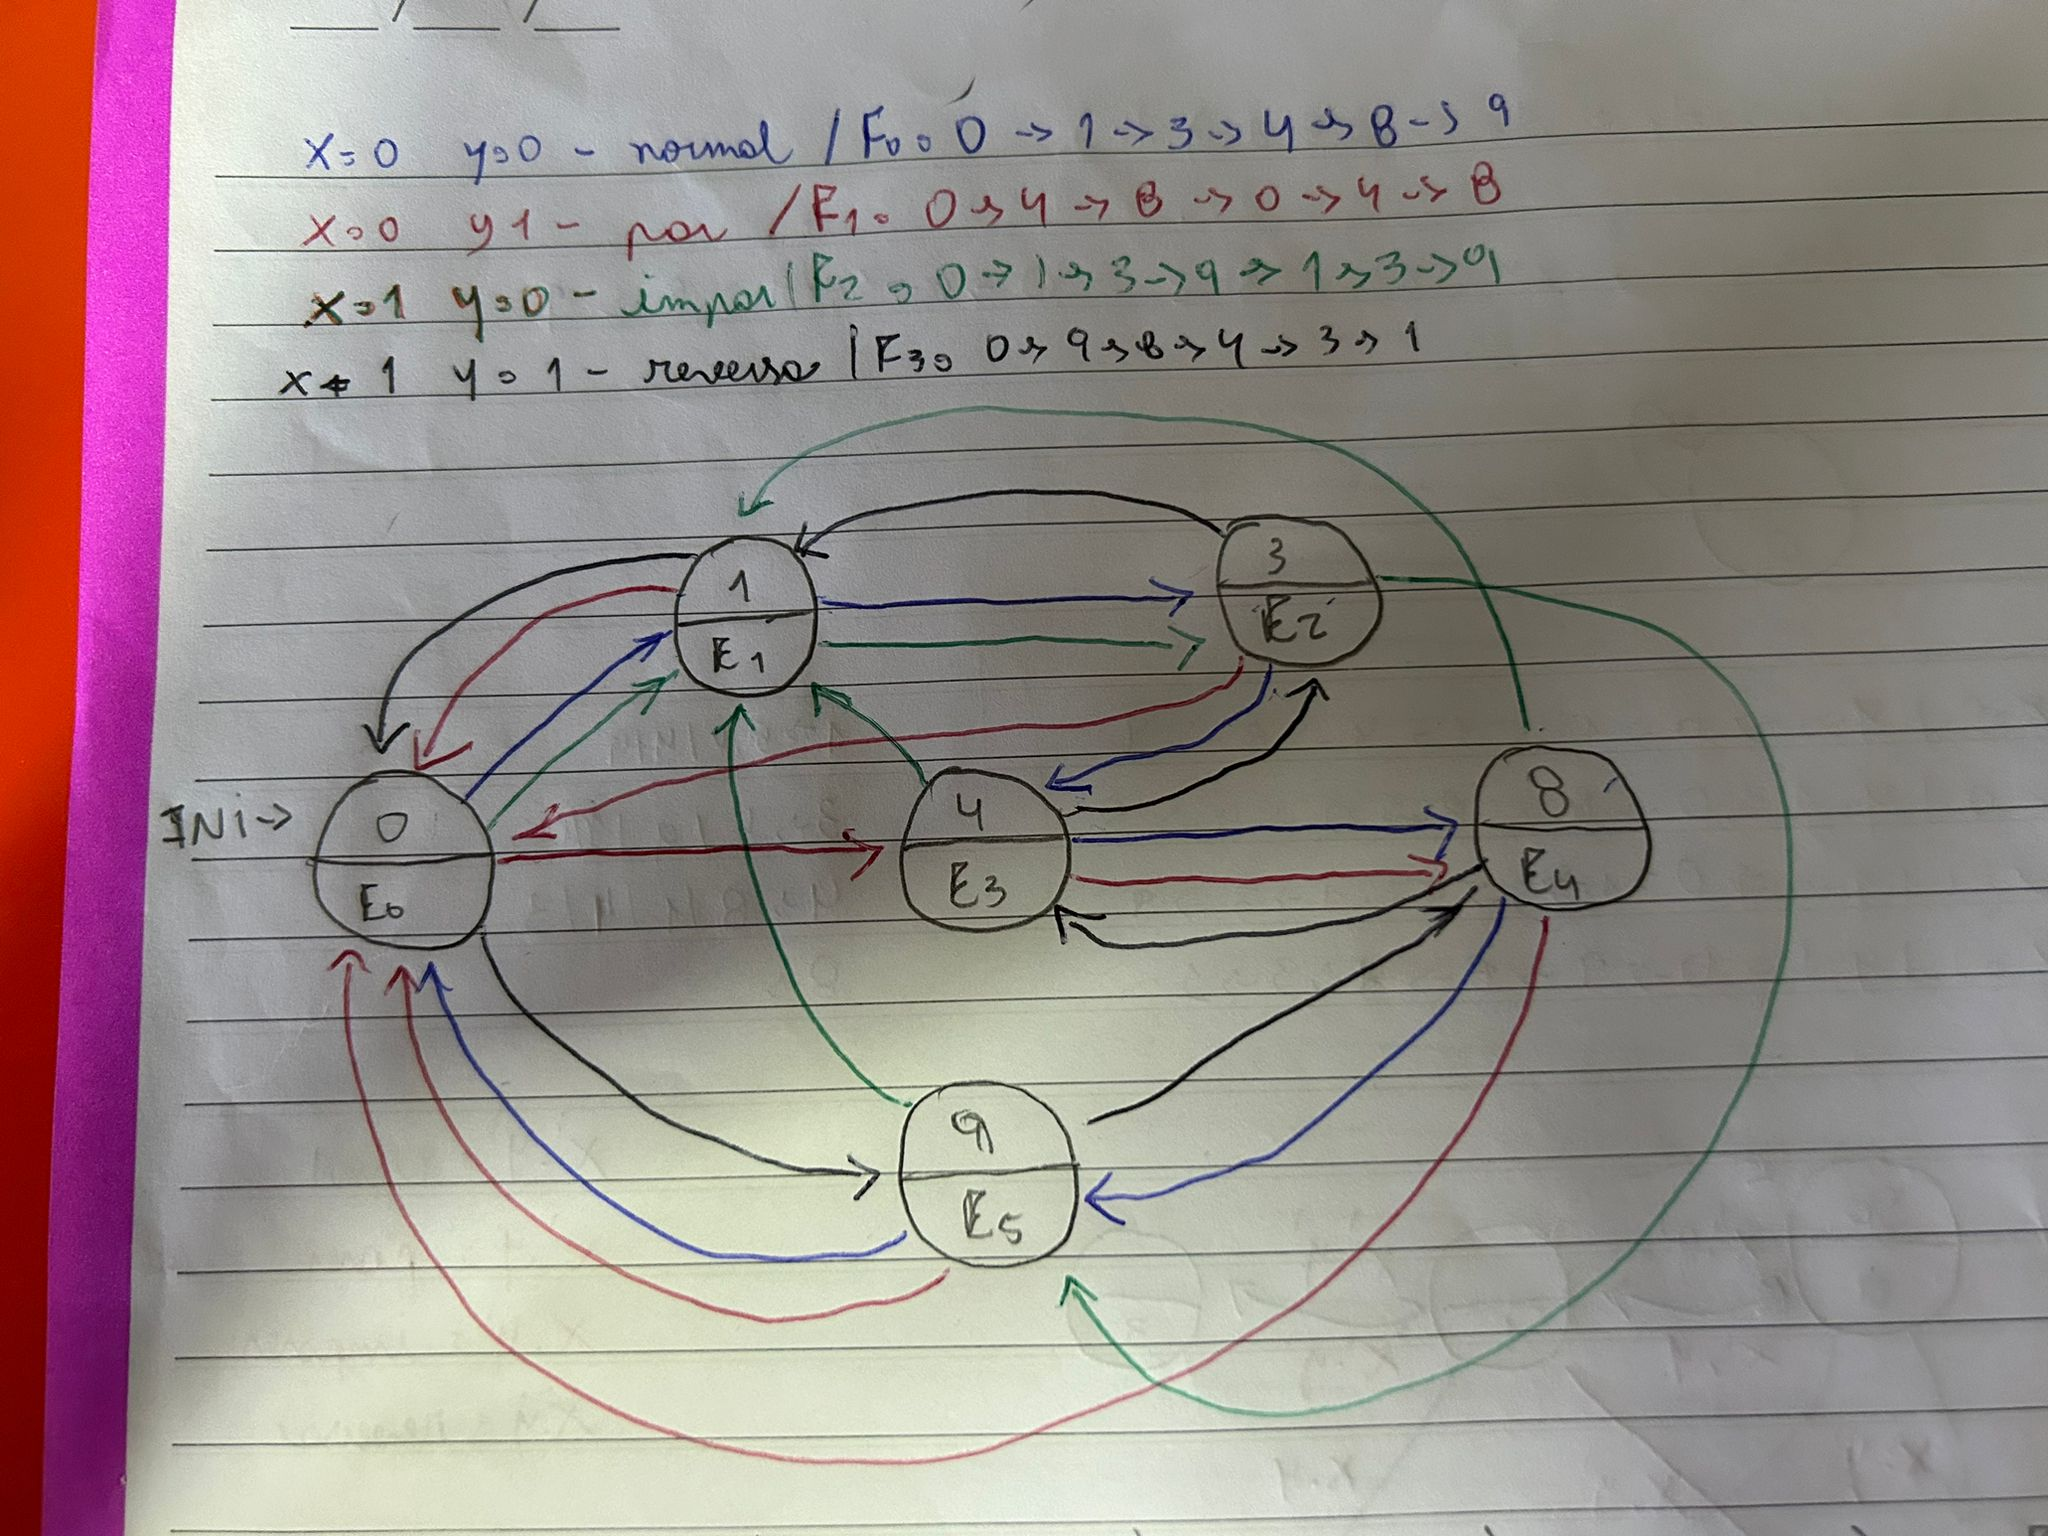 x=0 y=0 - normal / F0= 0 → 1 → 3 → 4 → 8 → 9
x=0 y1 - par / F1= 0 → 4 → 8 → 0 → 4 → 8
x=1 y=0 - impar / F2 = 0 → 1 → 3 → 9 → 1 → 3 → 9
x=1 y=1 - reverso / F3= 0 → 9 → 8 → 4 → 3 → 1
1
E1
3
E2
INi→
0
E0
4
E3
8
E4
9
E5